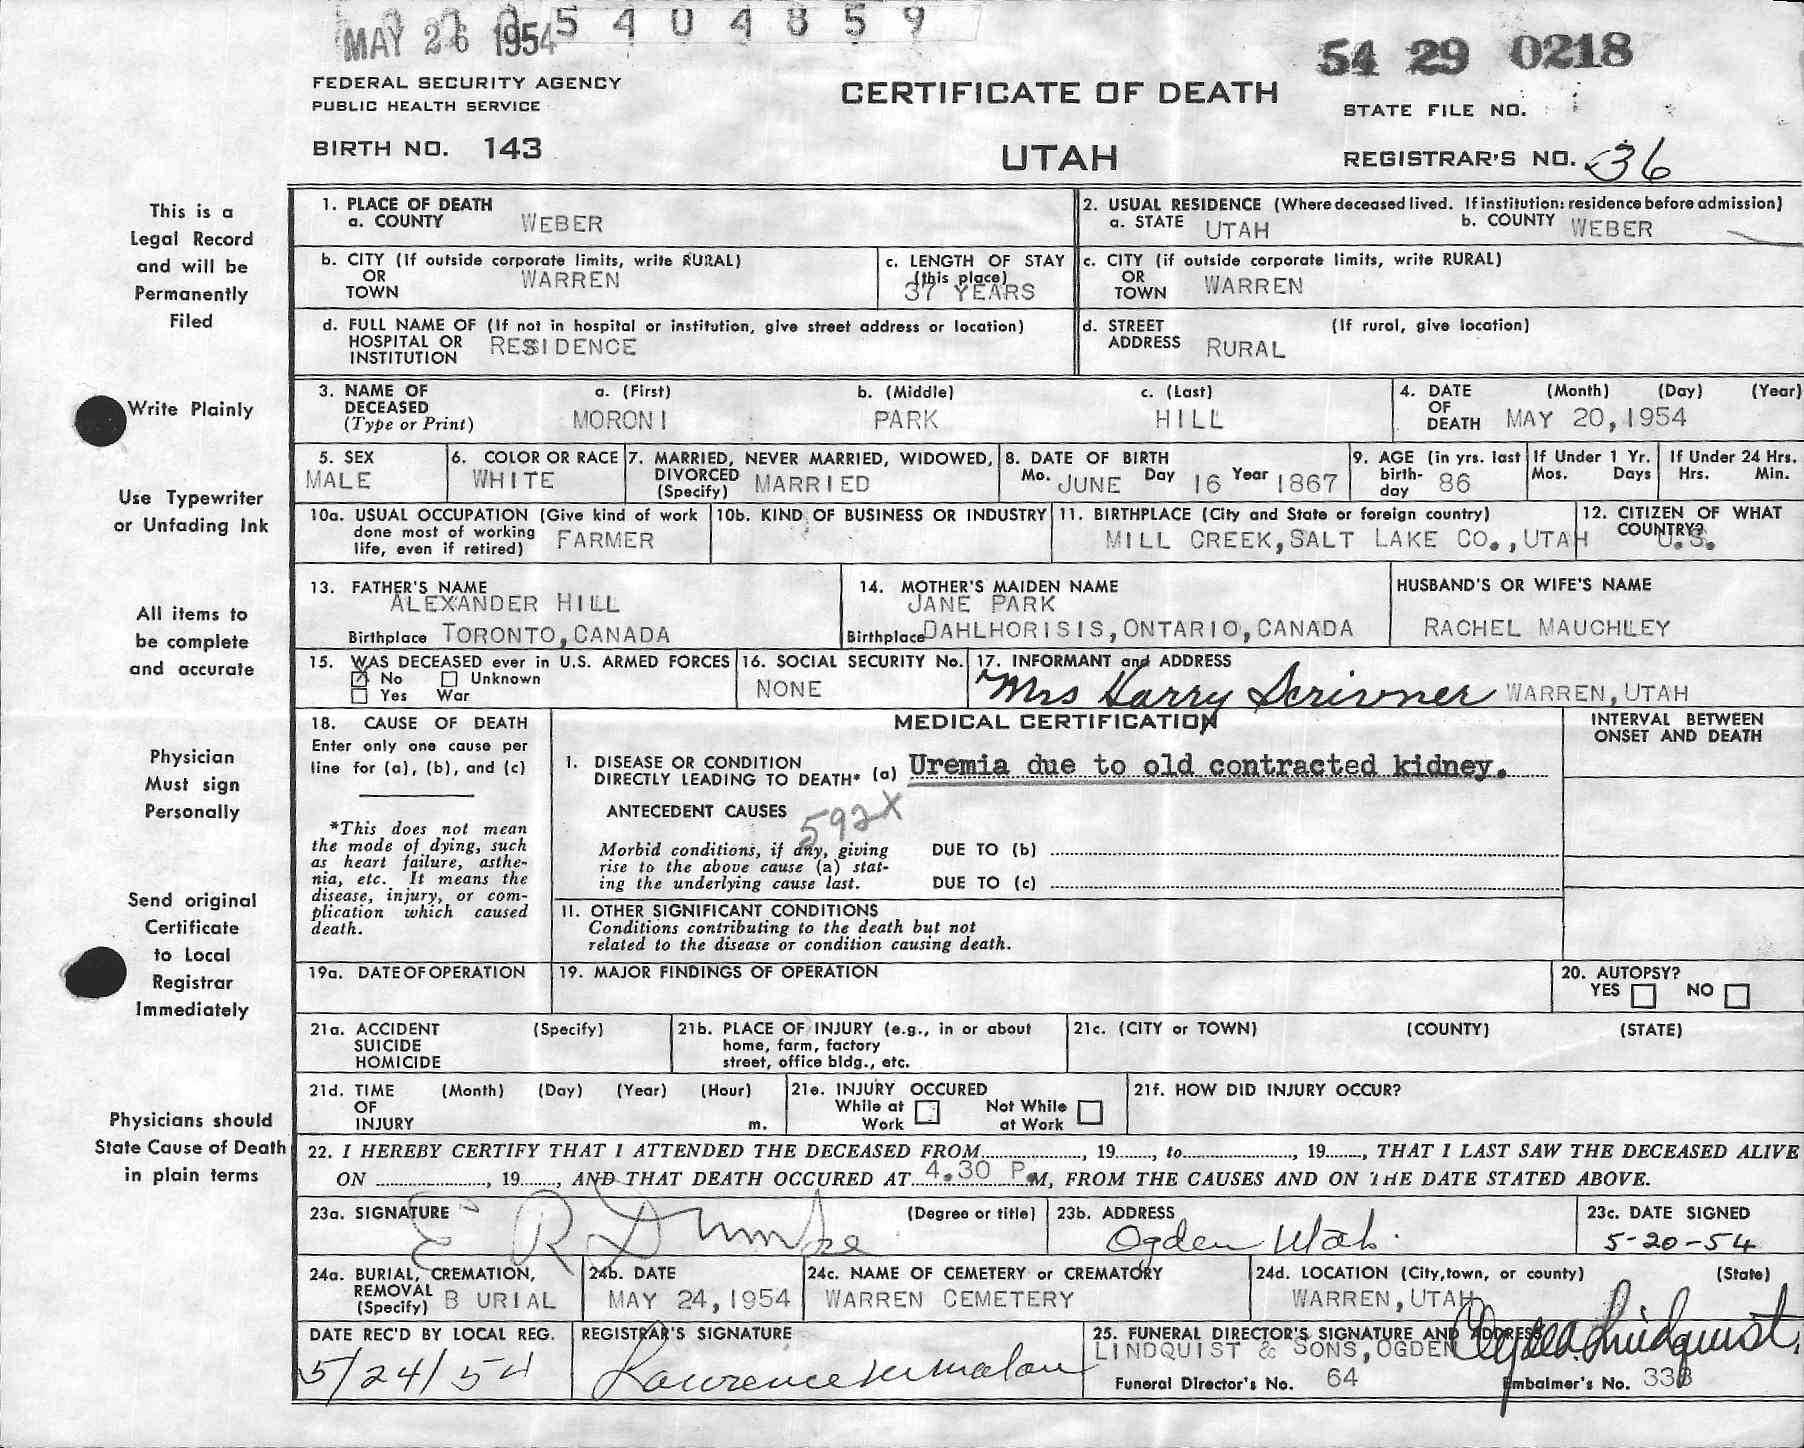 MAY 26 1954 5 4 0 4 8 5 9
54 29 0218
FEDERAL SECURITY AGENCY
PUBLIC HEALTH SERVICE
CERTIFICATE OF DEATH
STATE FILE NO.
BIRTH NO. 143
UTAH
REGISTRAR'S NO. 36
This is a
Legal Record
and will be
Permanently
Filed
Write Plainly
Use Typewriter
or Unfading Ink
All items to
be complete
and accurate
Physician
Must sign
Personally
Send original
Certificate
to Local
Registrar
Immediately
Physicians should
State Cause of Death
in plain terms
1. PLACE OF DEATH
a. COUNTY WEBER
2. USUAL RESIDENCE (Where deceased lived. If institution: residence before admission)
a. STATE UTAH b. COUNTY WEBER
b. CITY (If outside corporate limits, write RURAL)
OR
TOWN WARREN
c. LENGTH OF STAY
(this place)
37 YEARS
c. CITY (if outside corporate limits, write RURAL)
OR
TOWN WARREN
d. FULL NAME OF (If not in hospital or institution, give street address or location)
HOSPITAL OR
INSTITUTION RESIDENCE
d. STREET (If rural, give location)
ADDRESS RURAL
3. NAME OF a. (First) b. (Middle) c. (Last)
DECEASED
(Type or Print) MORONI PARK HILL
4. DATE (Month) (Day) (Year)
OF
DEATH MAY 20, 1954
5. SEX
MALE
6. COLOR OR RACE
WHITE
7. MARRIED, NEVER MARRIED, WIDOWED,
DIVORCED
(Specify) MARRIED
8. DATE OF BIRTH
Mo. JUNE Day 16 Year 1867
9. AGE (in yrs. last
birth-
day 86
If Under 1 Yr.
Mos. Days
If Under 24 Hrs.
Hrs. Min.
10a. USUAL OCCUPATION (Give kind of work
done most of working
life, even if retired) FARMER
10b. KIND OF BUSINESS OR INDUSTRY
11. BIRTHPLACE (City and State or foreign country)
MILL CREEK, SALT LAKE CO., UTAH
12. CITIZEN OF WHAT
COUNTRY?
U.S.
13. FATHER'S NAME
ALEXANDER HILL
Birthplace TORONTO, CANADA
14. MOTHER'S MAIDEN NAME
JANE PARK
Birthplace DAHLHORISIS, ONTARIO, CANADA
HUSBAND'S OR WIFE'S NAME
RACHEL MAUCHLEY
15. WAS DECEASED ever in U.S. ARMED FORCES
No Unknown
Yes War
16. SOCIAL SECURITY No.
NONE
17. INFORMANT and ADDRESS
Mrs Harry Scrivner WARREN, UTAH
18. CAUSE OF DEATH
Enter only one cause per
line for (a), (b), and (c)
*This does not mean
the mode of dying, such
as heart failure, asthe-
nia, etc. It means the
disease, injury, or com-
plication which caused
death.
MEDICAL CERTIFICATION
INTERVAL BETWEEN
ONSET AND DEATH
I. DISEASE OR CONDITION
DIRECTLY LEADING TO DEATH* (a) Uremia due to old contracted kidney.
ANTECEDENT CAUSES
592X
Morbid conditions, if any, giving
rise to the above cause (a) stat-
ing the underlying cause last.
DUE TO (b)
DUE TO (c)
II. OTHER SIGNIFICANT CONDITIONS
Conditions contributing to the death but not
related to the disease or condition causing death.
19a. DATE OF OPERATION
19. MAJOR FINDINGS OF OPERATION
20. AUTOPSY?
YES NO
21a. ACCIDENT (Specify)
SUICIDE
HOMICIDE
21b. PLACE OF INJURY (e.g., in or about
home, farm, factory
street, office bldg., etc.
21c. (CITY or TOWN) (COUNTY) (STATE)
21d. TIME (Month) (Day) (Year) (Hour)
OF
INJURY m.
21e. INJURY OCCURED
While at Work Not While at Work
21f. HOW DID INJURY OCCUR?
22. I HEREBY CERTIFY THAT I ATTENDED THE DECEASED FROM........, 19......, to........, 19......, THAT I LAST SAW THE DECEASED ALIVE
ON ........, 19......, AND THAT DEATH OCCURED AT 4.30 P.M, FROM THE CAUSES AND ON THE DATE STATED ABOVE.
23a. SIGNATURE (Degree or title)
E R Dumke
23b. ADDRESS
Ogden Utah.
23c. DATE SIGNED
5-20-54
24a. BURIAL, CREMATION,
REMOVAL
(Specify) BURIAL
24b. DATE
MAY 24, 1954
24c. NAME OF CEMETERY or CREMATORY
WARREN CEMETERY
24d. LOCATION (City, town, or county) (State)
WARREN, UTAH
DATE REC'D BY LOCAL REG.
5/24/54
REGISTRAR'S SIGNATURE
Lawrence Malan
25. FUNERAL DIRECTOR'S SIGNATURE AND ADDRESS
LINDQUIST & SONS, OGDEN Lindquist
Funeral Director's No. 64 Embalmer's No. 338